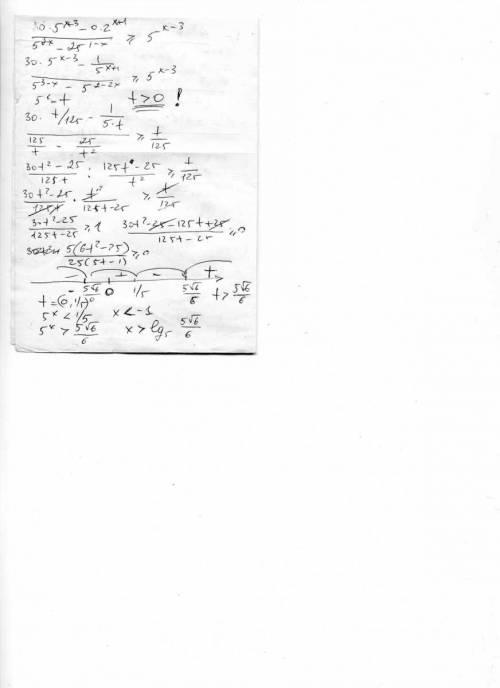 30·5^(x-3) - 0.2^(x+1) / 5^(3-x) - 25^(1-x) ≥ 5^(x-3)
30·5^(x-3) - 1/5^(x+1) / 5^(3-x) - 5^(2-2x) ≥ 5^(x-3)
5^x = t t>0 !
30· t/125 - 1/(5·t) / 125/t - 25/t² ≥ t/125
30t² - 25 / 125t : 125t - 25 / t² ≥ t/125
30t²-25 / 125t · t² / 125t-25 ≥ t/125
30t²-25 / 125t-25 ≥ 1 30t²-25-125t+25 / 125t-25 ≥0
5(6t²-25) / 25(5t-1) ≥0
- + - +
5√6 0 1/5 5√6/6 t > 5√6/6
t = (0, 1/5)
5^x < 1/5 x < -1
5^x > 5√6/6 x > lg₅ 5√6/6